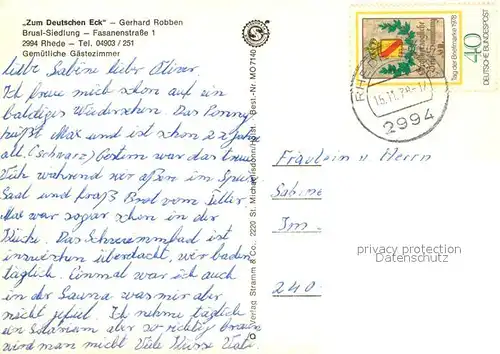 „Zum Deutschen Eck" — Gerhard Robben
Brual-Siedlung — Fasanenstraße 1
2994 Rhede — Tel. 04903 / 251
Gemütliche Gästezimmer
liebe Sabine lieber Oliver.
Ich freue mich schon auf ein
baldiges Wiedersehen. Das Ponny
heißt Max und ist schon 22 Jahre
alt. (schwarz) Gestern war das treue
Vieh während wir aßen im Speise
Saal und fraß Brot vom Teller
Max war sogar schon in der
Küche. Das Schwimmbad ist
inzwischen überdacht, wir baden
täglich. Einmal war ich auch
in der Sauna was mir aber
nicht gefiel. Ich nehme täglich
ein Solarium aber so richtig braun
wird man nicht Viele Küsse Vati.
© Verlag Stramm & Co., 2220 St. Michaelisdonn/Holst. Best.-Nr. MO 7140
Tag der Briefmarke 1978
40
DEUTSCHE BUNDESPOST
15.11.78-17
2994
Fräulein u Herrn
Sabine
Im
240
privacy protection
Datenschutz